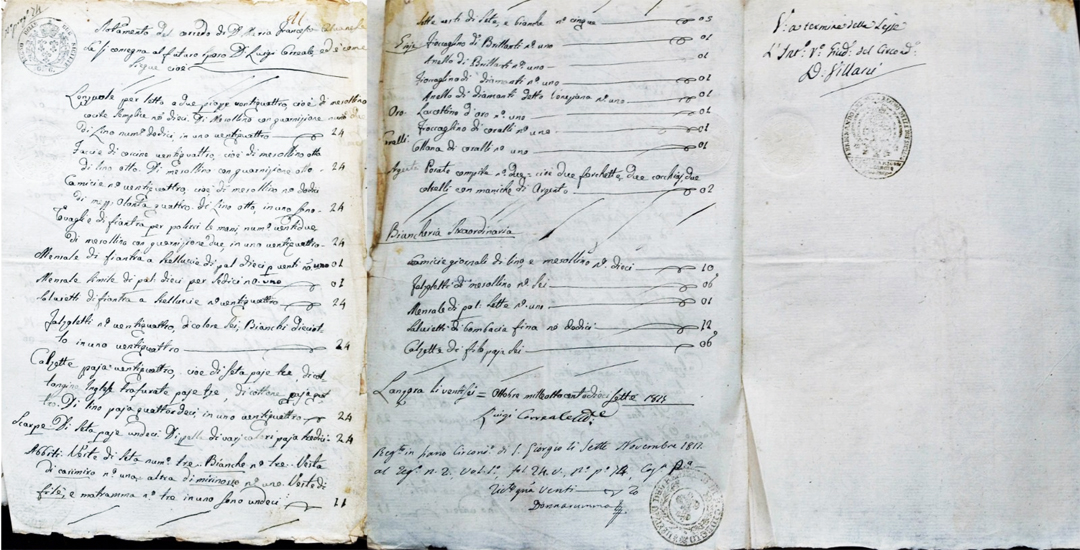 Notamento del corredo di D. Maria Francesca
da consegna al futuro sposo D. Luigi Correale, ed è come
segue cioè
Lenzuola per letto a due piazze ventiquattro, cioè di merollino
di Lino num.° dodici in uno ventiquattro 24
Facce di coscine ventiquattro, cioè di merollino otto
di lino otto. Di merollino con guarnizione otto 24
Camicie n.° ventiquattro, cioè di merollino n.° dodici
quattro. di Lino otto, in uno sono 24
di fiantra per polirsi le mani num.° ventidue
di merollino con guarnizione due, in uno ventiquattro 24
Mensale di fiantra a stelluccie di pal. dieci p. venti n.° uno 01
Mensale simile di pal. dieci per sedici n.° uno 01
Salvietti di fiantra a stelluccie n.° ventiquattro 24
Falzoletti n.° ventiquattro, di colore sei Bianchi dieciot=
to in uno ventiquattro 24
Calzette paja ventiquattro, cioè di seta paja tre, di cot=
Inglese trafurate paja tre, di cottone paja
Di lino paja quattordeci in uno ventiquattro 24
Scarpe Di seta paja undeci Di pelle di varj colori paja tredici 24
Abbiti Veste di seta num.° tre. Bianche n.° tre. Vesta
di casimiro n.° uno, altra di n.° uno. Veste di
e matramma n.° tre in uno sono undeci 11
Sotto vesti di seta, e bianche n.° cinque 05
Gioje Fioccaglino di Brillanti n.° uno 01
Anello di Brillanti n.° uno 01
Fioccaglino di diamanti n.° uno 01
Anello di diamanti detto Veneziana n.° uno 01
Oro Laccettino d'oro n.° uno 01
Coralli Fioccaglino di coralli n.° uno 01
Collana di coralli n.° uno 01
Argento Posate compite n.° due, cioè due forchette, due cocchiaj, due
coltelli con maniche di Argento 02
Biancheria straordinaria
Camicie giornali di lino, e merollino n.° dieci 10
Falzoletti di merollino n.° sei 06
Mensale di pal. sette n.° uno 01
Salvietti di bombacia fina n.° dodici 12
Calzette di filo paja sei 06
li ventisei = Ottobre milleottocentodiecisette 1817
Luigi Correale
Reg.to in S. Giorgio li sette Novembre 1817
al Reg.° n. 2. Vol. 1.° fol. 24. v. n.° p.° 14. Cas.a
grà venti 20
Donnarumma
V.° a termine della Legge
Giud.e del Circond.°
D. Villari